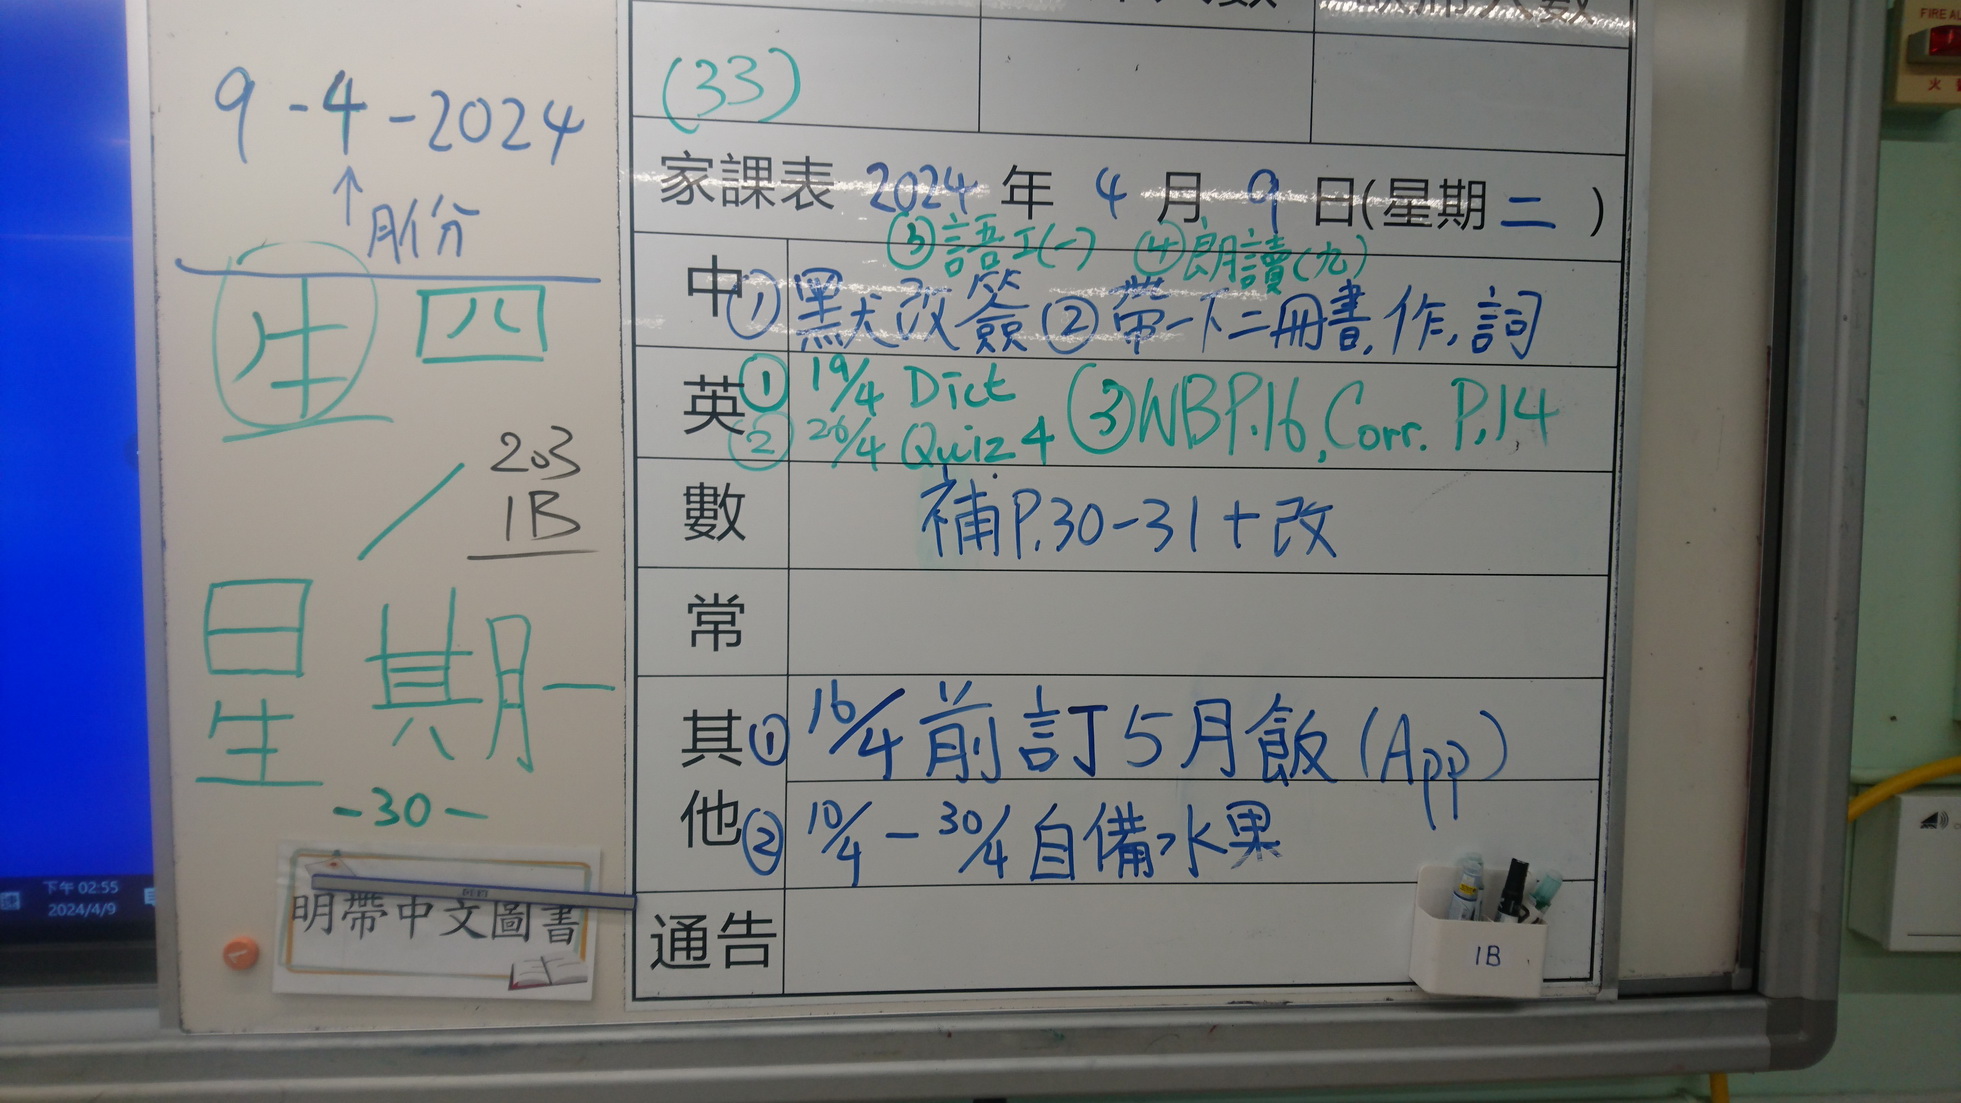 9-4-2024
↑
月份
生 四
203
1B
日 期一
生
-30-
明帶中文圖書
下午 02:55
2024/4/9
(33)
家課表 2024 年 4 月 9 日(星期 二 )
③語工(一) ④朗讀(九)
中 ①默改簽 ②帶一下二冊書,作,詞
英 ① 19/4 Dict ③WBP.16, Corr. P.14
② 26/4 Quiz 4
數 補P.30-31+改
常
其他 ① 16/4前訂5月飯(App)
② 10/4-30/4自備水果
通告
1B
FIRE AL
火